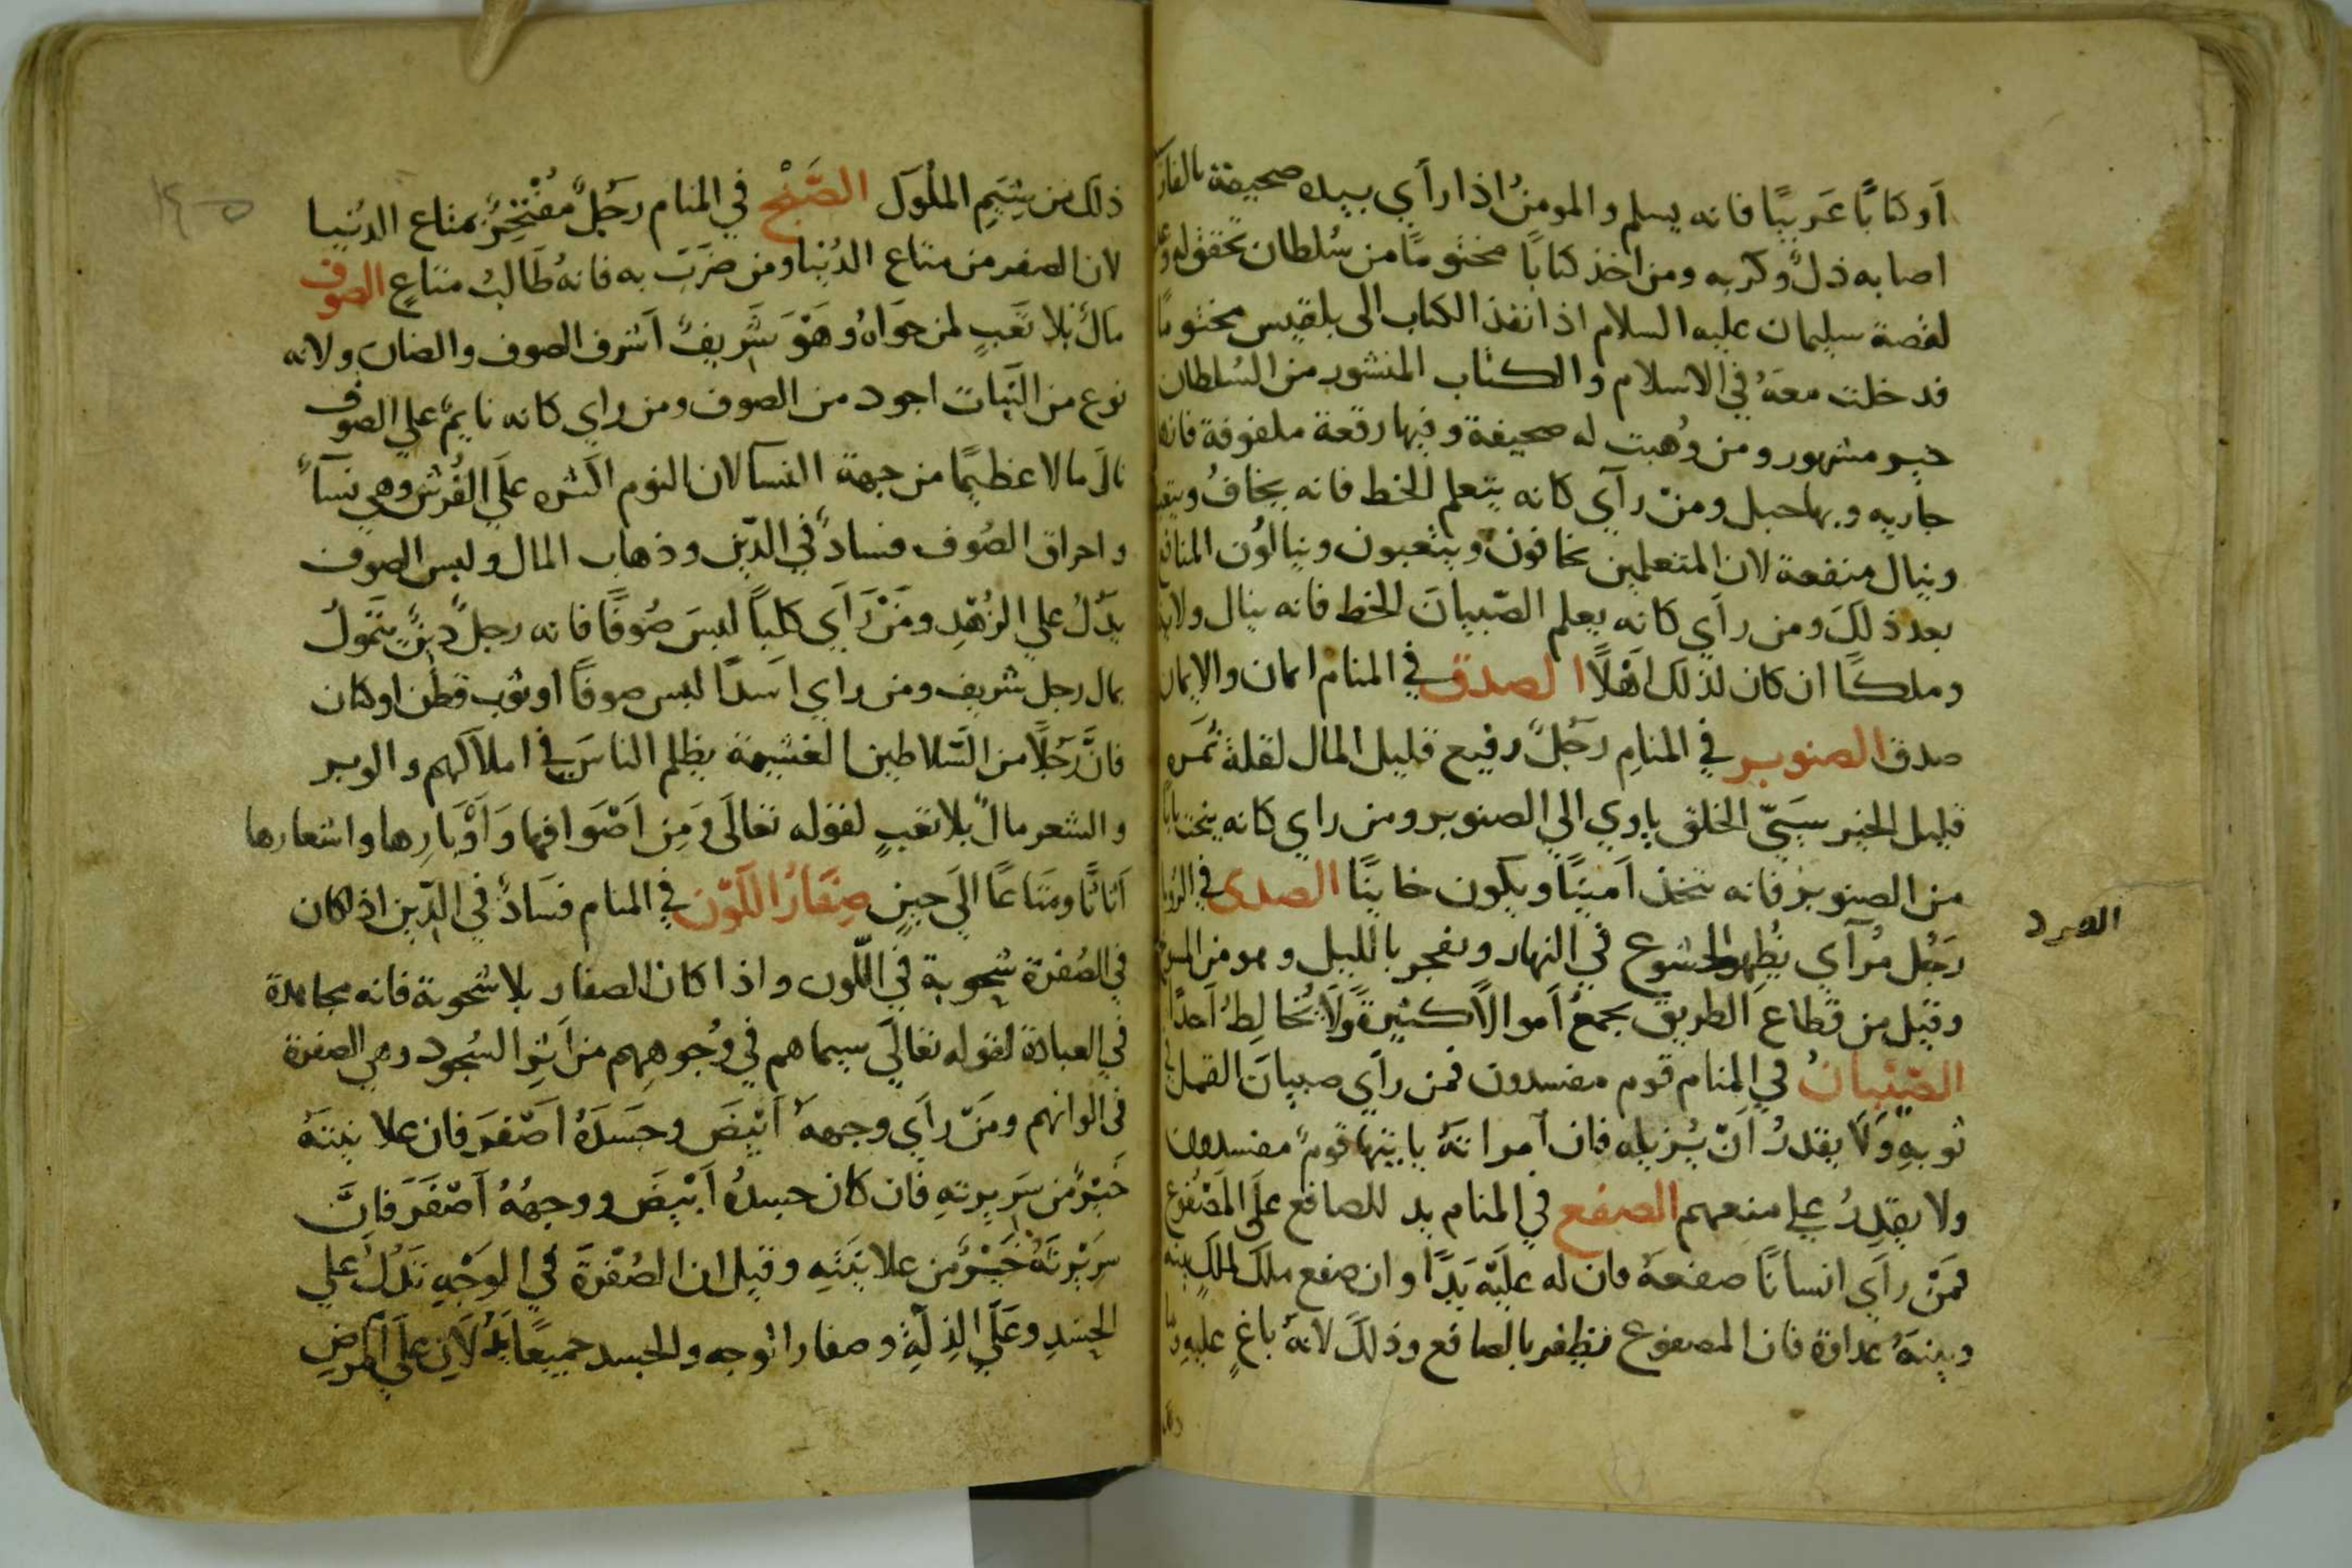 أو كتابًا عَربيًا فانه يسلم والمومنُ اذا رأي بيده صحيفة
اصابه ذلٌ وكربه ومن اخذ كتابًا مختومًا من سُلطان تحقق له
لقصة سليمان عليه السلام اذ انفذ الكتاب الى بلقيس مختوما
فدخلت معهُ في الاسلام والكتاب المنشور من السُلطان
خبر مشهور ومن وُهبت له صحيفة وفيها رقعة ملفوفة فانها
جاريه وبها حبل ومن رآي كانه يتعلم الخط فانه يخافُ
وينال منفعة لان المتعلمين يخافون ويتعبون وينالون المنافع
بعد ذلك ومن رأي كانه يعلم الصّبيانَ الخط فانه ينال
وملكًا ان كان لذلك اهْلًا الصدق في المنام ايمان والايمان
صدق الصنوبر في المنامِ رَجُلٌ رفيع قليل المال لقلة ثمَره
قليل الخير سَيّئ الخلق ياوي الي الصنوبر ومن راي كانه
من الصنوبر فانه يتخذ امينًا ويكون خاينًا الصدى في
رَجُل مُرآي يُظهر الخشوع في النهار ويفجر بالليل وهو من
وقيل من قطاع الطريق يجمعُ اموالًا كثيرةً ولا يُخالِطُ احدًا
الصّئبانُ في المنام قوم مفسدون فمن رأي صيبانَ القمل
ثوبهِ ولا يقدرُ اَنْ يُزيله فان امراتهُ ياتيها قومٌ مفسدون
ولا يقدِرُ علي منعهم الصفع في المنام يد للصافع علَي المَصْفُوع
فمَنْ رأَي انسانًا صفعهُ فان له علَيْه يَدًا وان صفع ملك
وبينهُ عداوة فان المصفوع يظفر بالصافع وذلك لانهُ باغٍ عليهِ
ذلك من شِيَمِ الملُوك الصُفْر في المنام رَجُلٌ مُفْتَخِرٌ بمتاع الدُنيا
لان الصفر من متاع الدُنيا ومن ضرَبَ به فانهُ طَالبُ متاعٍ الصوف
مَالٌ بلا تَعَبٍ لمن حوَاهُ وهوَ شَريفٌ اشرف الصوف والضان ولانه
نوع من النَبات اجود من الصوف ومن راي كانه نايمٌ علي الصوف
نالَ مالا عظيمًا من جهة النسا لان النوم اكثره علَي الفُرش وهي نسآءٌ
واحراق الصُوف فسادٌ في الدّين وذهاب المال ولبس الصوف
يَدُلُ علي الزُهْدِ ومَنْ رَأَي كلبًا لبسَ صُوفًا فانه رجلٌ يَتَموّلُ
بمال رجل شريف ومن راي اسدًا لبس صوفًا او ثوب قطن او كتان
فانَّ رَجُلًا من السّلاطين الغشيمة يظلم الناسَ في املاكهم والوبر
والشعر مالٌ بلا تعبٍ لقوله تعالَي ومِن اصْوَافها وَاَوْبارِها واشعارها
اثاثًا ومتاعًا الَي حينٍ صِفَارُ اللَوْن في المنام فسَادٌ في الدّين اذا كان
في الصُفرة شحوبة في اللّون واذا كان الصفار بلا شحوبة فانه مجاهدة
في العبادة لقوله تعالَي سيماهم في وُجوهِهِم من اَثرِ السُجود وهي الصفرة
في الوانهم ومَنْ رأَي وجههُ اَبْيضَ وجسَدهُ اصْفرَ فان علانيتهُ
خَيْرٌ من سَرِيرتهِ فان كان جسدهُ اَبْيَضَ ووجههُ اَصْفَرَ فانَّ
سَرِيْرتَهُ خَيْرٌ من علانيَتهِ وقيل ان الصُفْرَةَ في الوَجْهِ تَدُلُ علي
الحَسَدِ وعَلَي الذِلَّةِ وصفار الوجه والجسد جميعًا يَدُلانِ علَي المرضِ